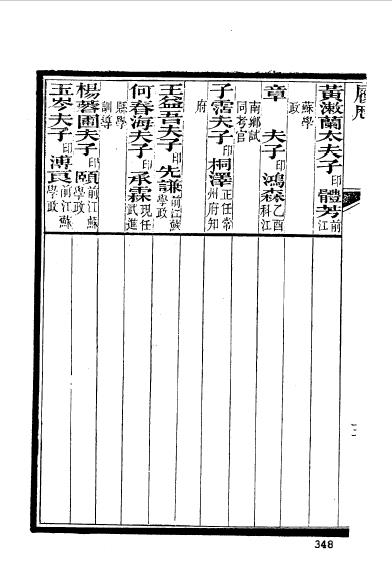 履歷
黃漱蘭太夫子印體芳前江
蘇學政
章　夫子印鴻森乙酉科江
南鄉試同考官
子霑夫子印桐澤正任常州府知
府
王益吾夫子印先謙前江蘇學政
何春海夫子印承霖現任武進
縣學訓導
楊蓉圃夫子印頤前江蘇學政
玉岑夫子印溥良前江蘇學政
348